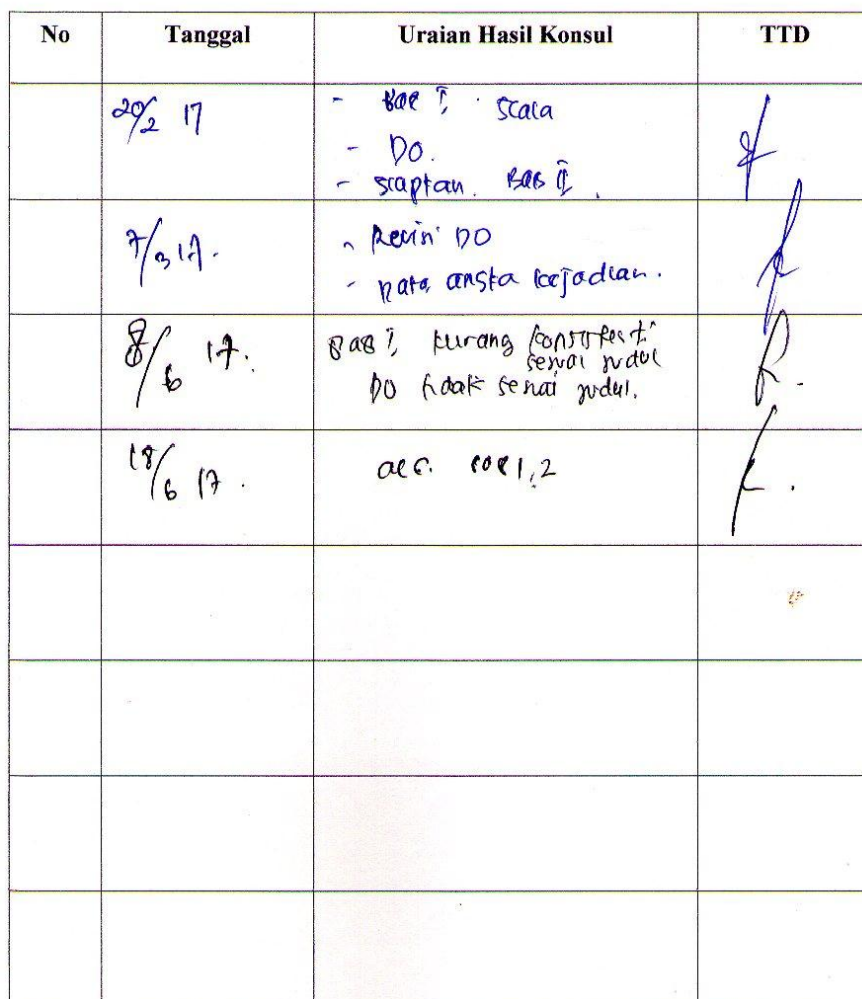 No Tanggal Uraian Hasil Konsul TTD
20/2 17 - BAB I, scala
- DO.
- siapkan BAB II.
7/3 17. - Revisi DO
- kejadian.
8/6 17. BAB I, kurang
sesuai judul
DO tidak sesuai judul.
18/6 17. acc. BAB 1,2